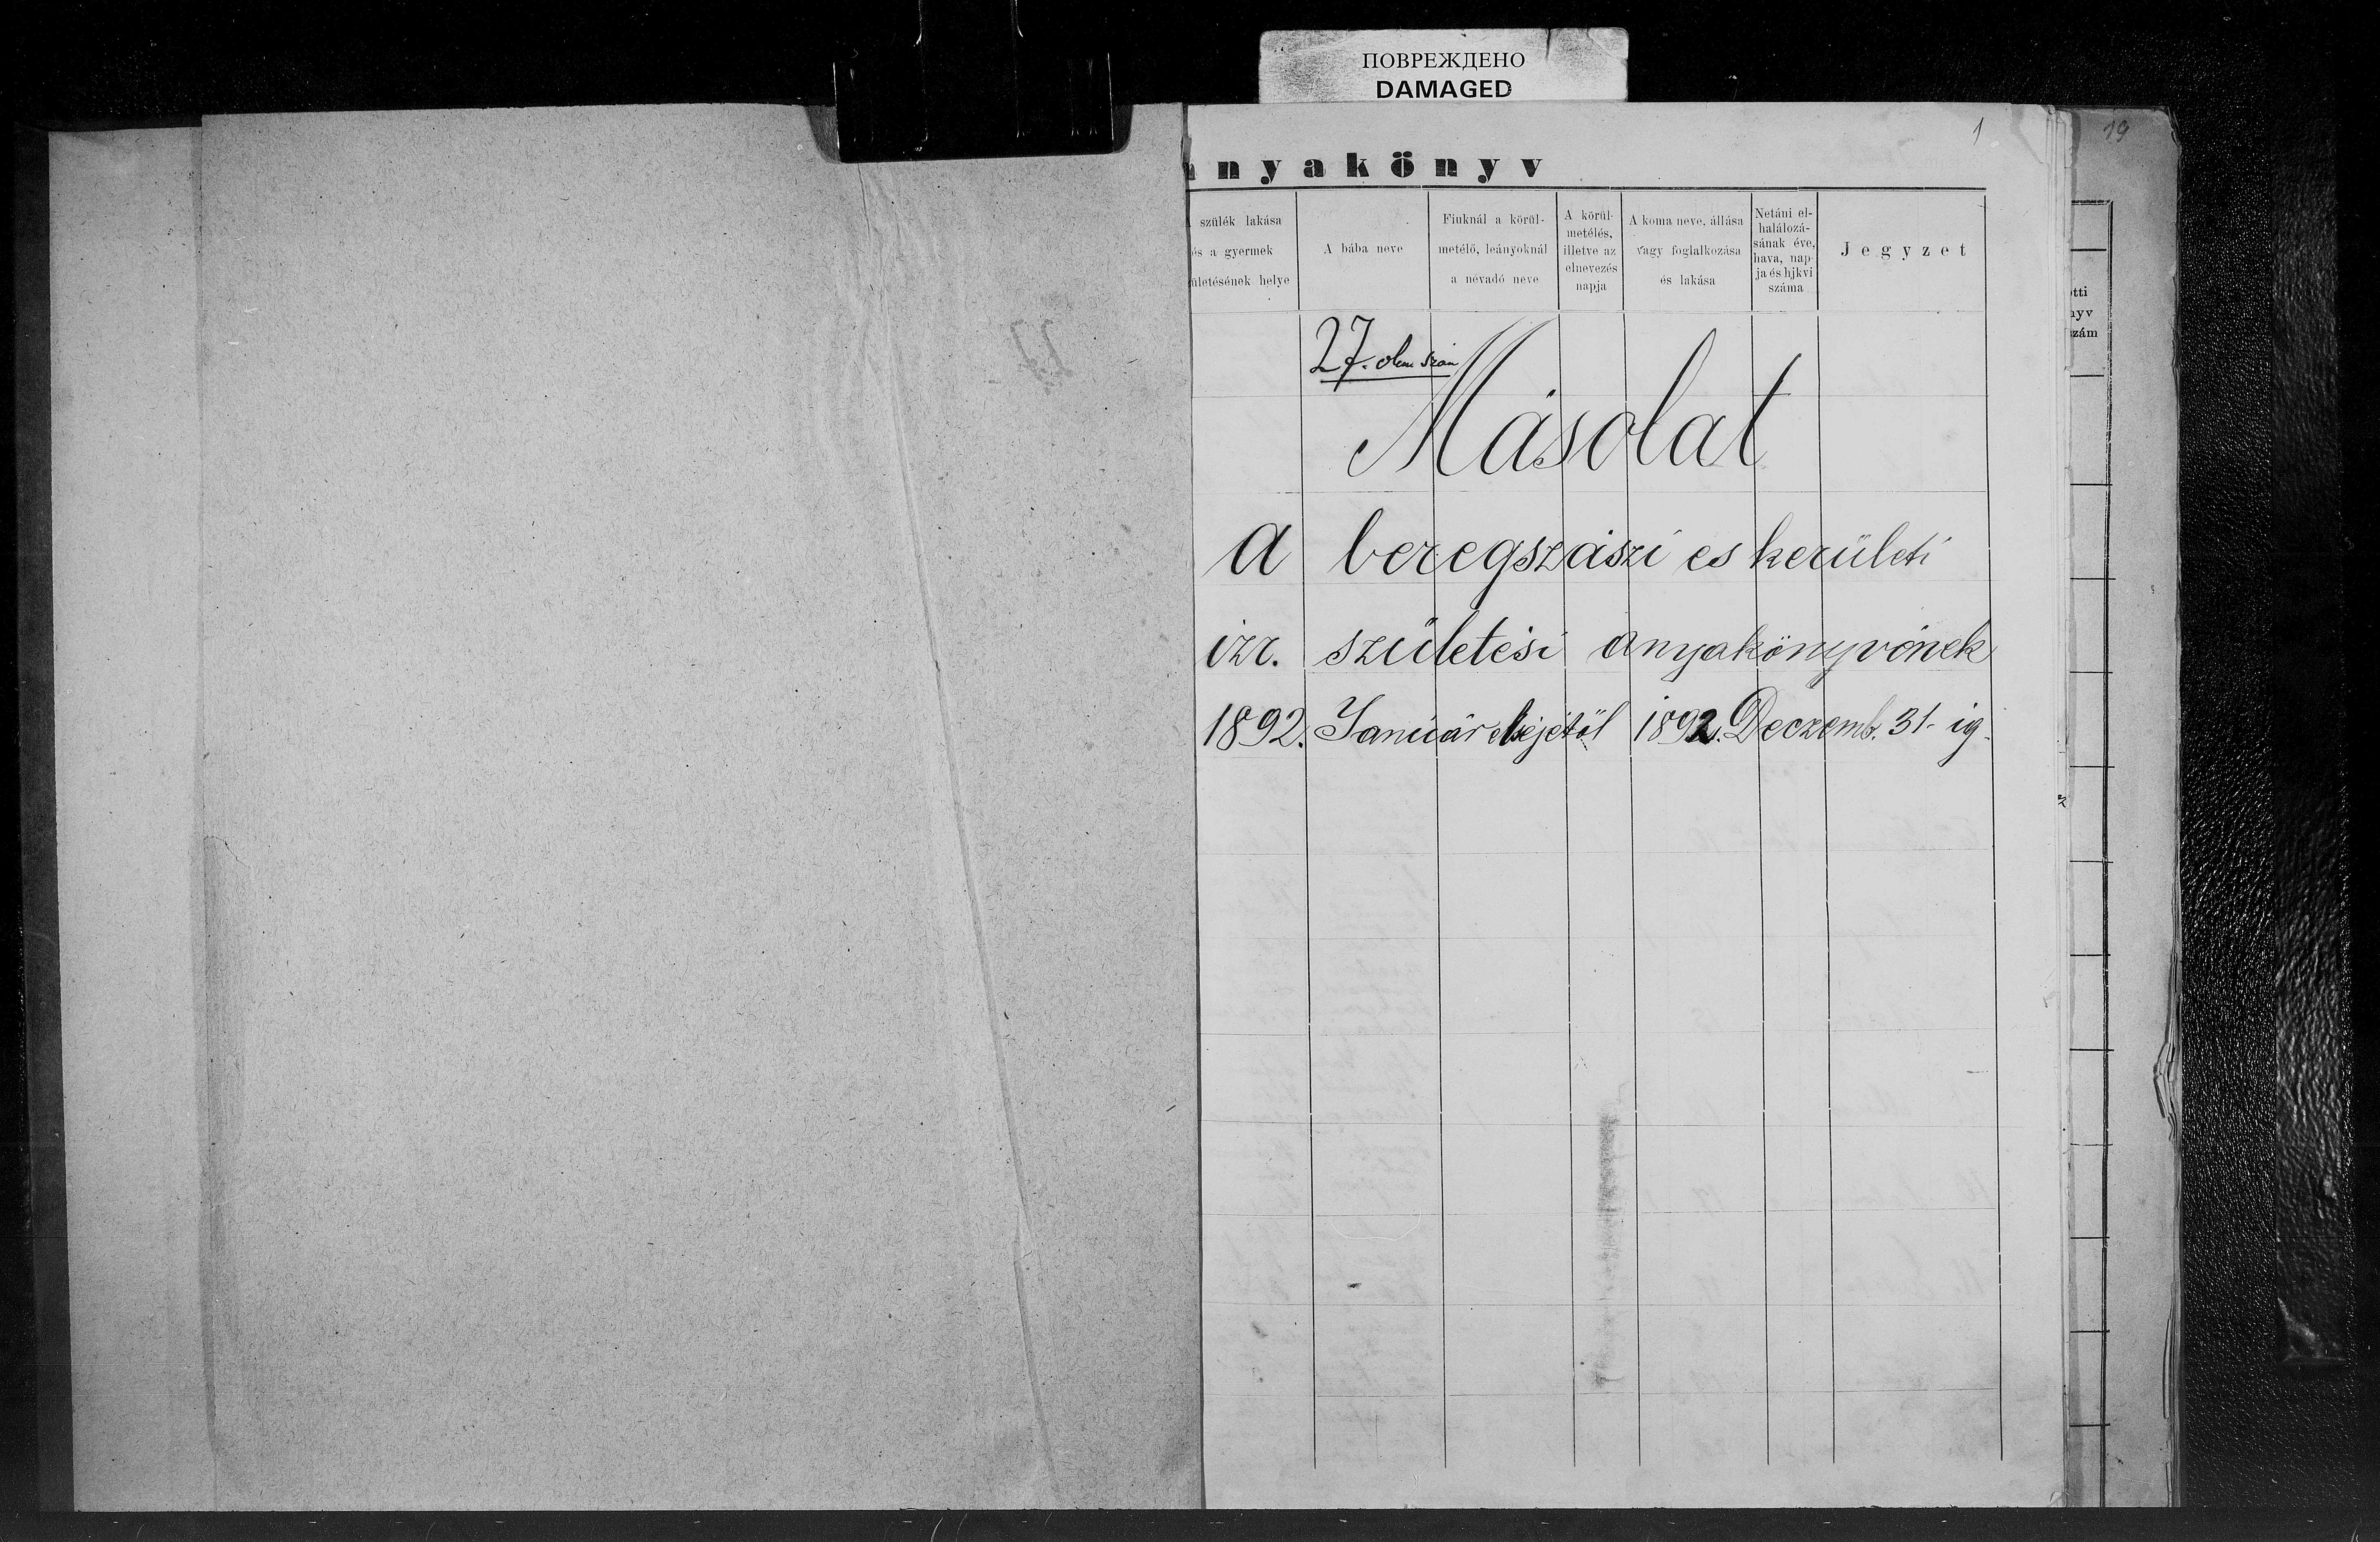 ПОВРЕЖДЕНО
DAMAGED
1
19
nyakönyv
szülék lakása
és a gyermek
ületésének helye
A bába neve
Fiuknál a körül-
metélő, leányoknál
a névadó neve
A körül-
metélés,
illetve az
elnevezés
napja
A koma neve, állása
vagy foglalkozása
és lakása
Netáni el-
halálozá-
sának éve,
hava, nap-
ja és hjkvi
száma
Jegyzet
tti
nyv
szám
27.
Másolat
A beregszászi es kerületi
izr. születési anyakönyvének
1892. Január elsejétől 1892. Deczemb. 31-ig